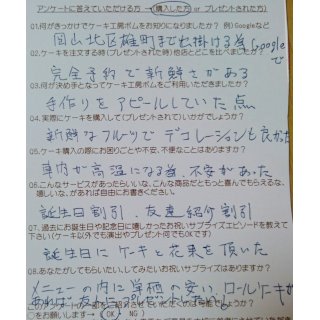 アンケートに答えていただける方 → 購入した方 or プレゼントされた方)
01.何がきっかけでケーキ工房ボムをお知りになりましたか? 例)Googleなど
岡山北区雄町まで出掛ける為Googleで
02.ケーキを注文する時(プレゼントされた時)他店とどこを比べましたか?
完全予約で新鮮さがある
03.何が決め手となってケーキ工房ボムをご利用いただきましたか?
手作りをアピールしていた点
04.実際にケーキを購入して(プレゼントされて)いかがでしょうか?
新鮮なフルーツでデコレーションも良かった
05.ケーキ購入の際にお困りごとや不安、不便なことはありますか?
車内が高温になる為、不安があった
06.こんなサービスがあったらいいな、こんな商品だともっと喜んでもらえるな、
嬉しいな、があれば自由にお書きください。
誕生日割引、友達紹介割引
07.過去にお誕生日や記念日に嬉しかったお祝いサプライズエピソードを教えて
下さい(ケーキ以外でも演出やプレゼント何でもOKです)
誕生日にケーキと花束を頂いた
08.あなたがしてもらいたい、してみたいお祝いサプライズはありますか?
メニューの内に単価の安い、ロールケーキが
あれば
○をお願いします→ (OK) NG )